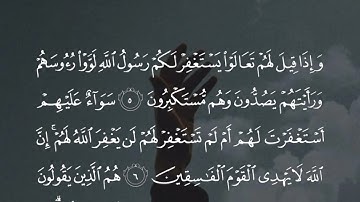 وَإِذَا قِيلَ لَهُمْ تَعَالَوْا۟ يَسْتَغْفِرْ لَكُمْ رَسُولُ ٱللَّهِ لَوَّوْا۟ رُءُوسَهُمْ
وَرَأَيْتَهُمْ يَصُدُّونَ وَهُم مُّسْتَكْبِرُونَ ٥ سَوَآءٌ عَلَيْهِمْ
أَسْتَغْفَرْتَ لَهُمْ أَمْ لَمْ تَسْتَغْفِرْ لَهُمْ لَن يَغْفِرَ ٱللَّهُ لَهُمْ ۚ إِنَّ
ٱللَّهَ لَا يَهْدِى ٱلْقَوْمَ ٱلْفَـٰسِقِينَ ٦ هُمُ ٱلَّذِينَ يَقُولُونَ